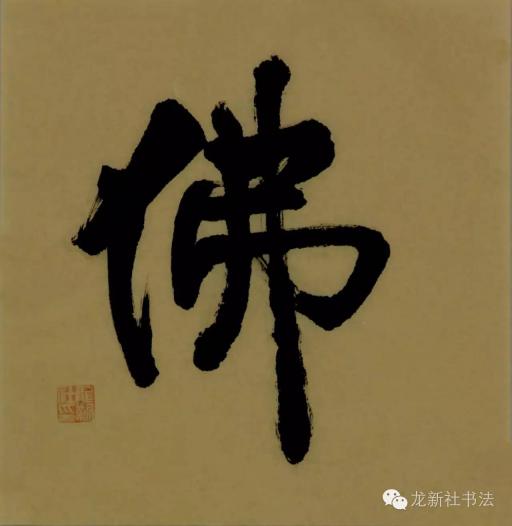 佛
龙新社书法